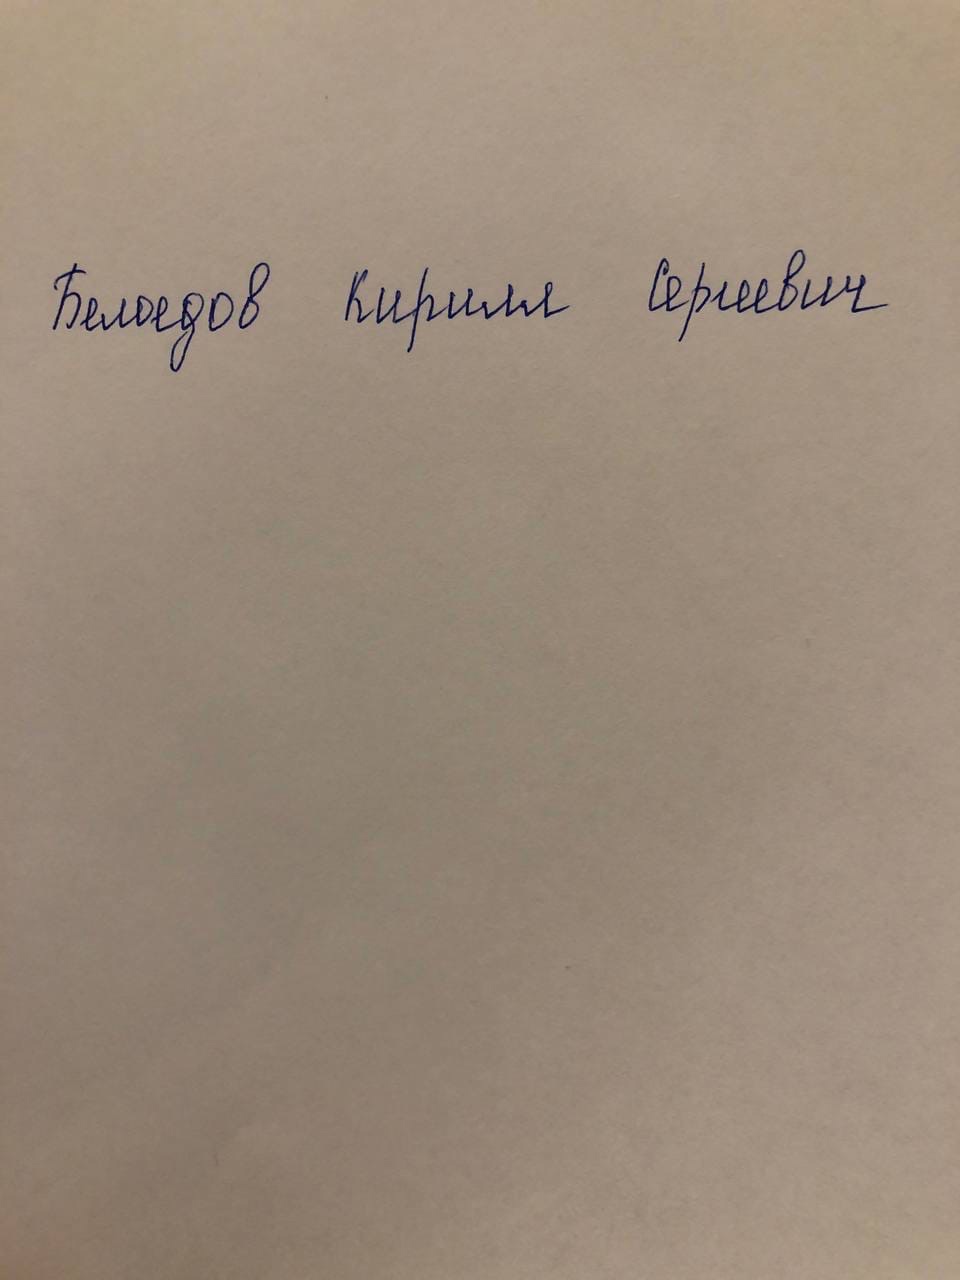 Белоедов Кирилл Сергеевич